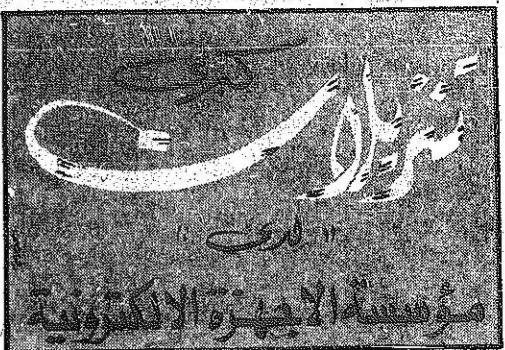 كبرى
تنزيلات
لدى
مؤسسة الاجهزة الالكترونية